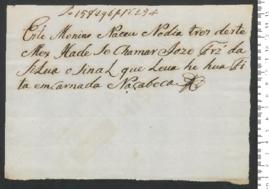 Este Menino Naceu No dia tres deste
Mes Hade Se Chamar Joze Frz. da
Silva e Sinal que Leva he hua Fi
ta emcarnada Na Cabeca